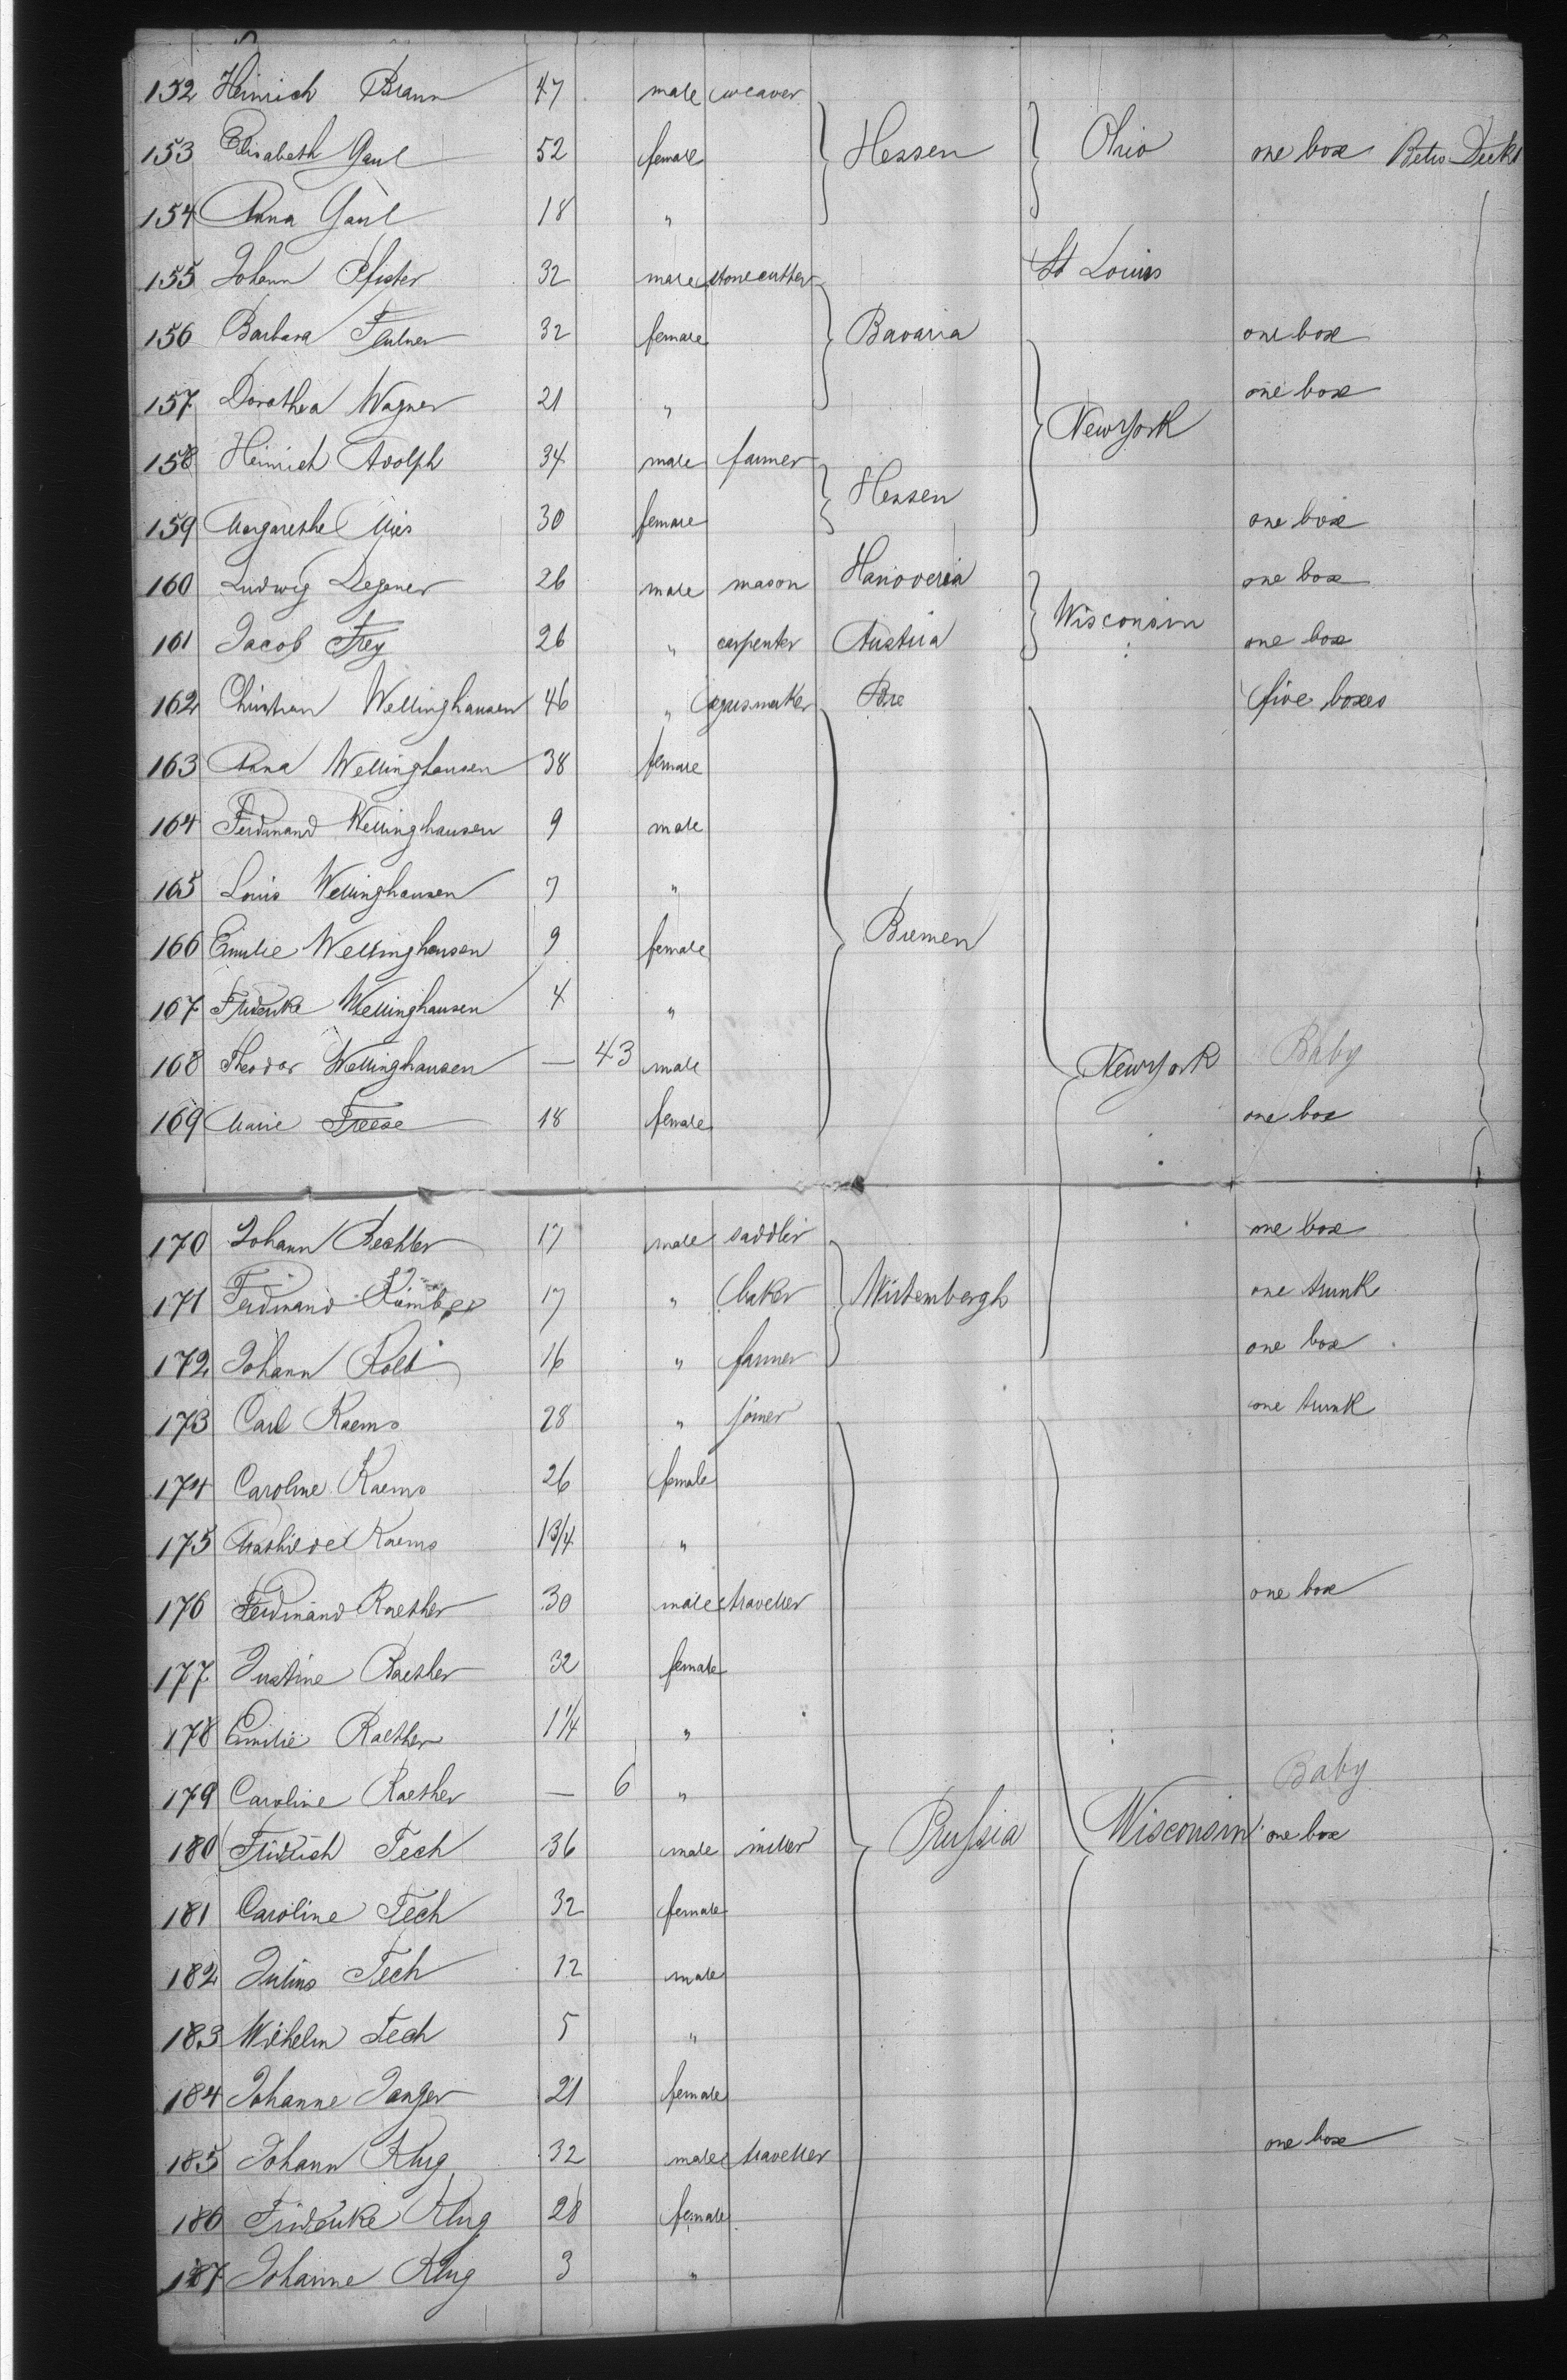 152 Heinrich Braun 47 male weaver
153 Elisabeth Gaul 52 female Hessen Ohio one box Betw. Decks
154 Anna Gaul 18 "
155 Johann Pfister 32 male stonecutter St Louis
156 Barbara 32 female Bavaria one box
157 Dorothea Wagner 21 " one box
158 Heinrich Adolph 34 male farmer NewYork
159 Margarethe Mies 30 female Hessen one box
160 Ludwig Degener 26 male mason Hanoveria one box
161 Jacob Frey 26 " carpenter Austria Wisconsin one box
162 Christian Wellinghausen 46 " five boxes
163 Anna Wellinghausen 38 female
164 Ferdinand Wellinghausen 9 male
165 Louis Wellinghausen 7 "
166 Emilie Wellinghausen 9 female Bremen
167 Friderike Wellinghausen 4 "
168 Theodor Wellinghausen — 43 male NewYork Baby
169 Marie Freese 18 female one box
170 Johann Bechtler 17 male saddler one box
171 Ferdinand 17 " baker Wirtembergh one trunk
172 Johann Kolb 16 " farmer one box
173 Carl Raems 28 " joiner one trunk
174 Caroline Raems 26 female
175 Mathilde Raems 1 3/4 "
176 Ferdinand Raether 30 male traveller one box
177 Justine Raether 32 female
178 Emilie Raether 1 1/4 "
179 Caroline Raether — 6 " Baby
180 Fridrich Tech 36 male miller Prussia Wisconsin one box
181 Caroline Tech 32 female
182 Julius Tech 12 male
183 Wilhelm Tech 5 "
184 Johanne Janger 21 female
185 Johann Klug 32 male traveller one box
186 Friderike Klug 28 female
187 Johanne Klug 3 "